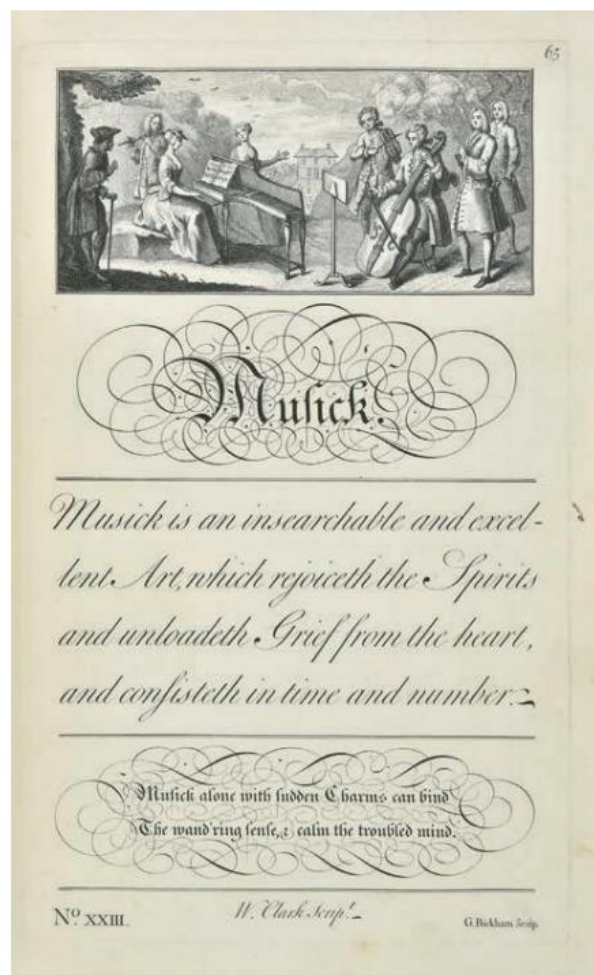 65
Musick.
Musick is an insearchable and excel-
lent Art, which rejoiceth the Spirits
and unloadeth Grief from the heart,
and consisteth in time and number.
Musick alone with sudden Charms can bind
The wand'ring sense, & calm the troubled mind.
No. XXIII.
W. Clark Scrip.t
G. Bickham Sculp.